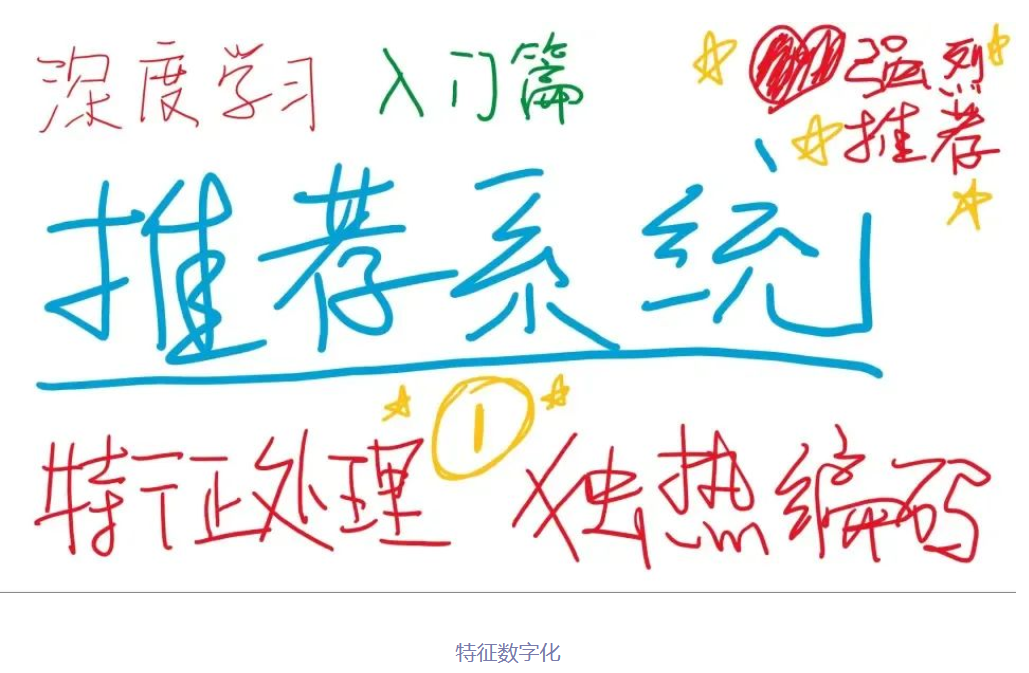 深度学习 入门篇
强烈
推荐
推荐系统
①
特征处理 独热编码
特征数字化